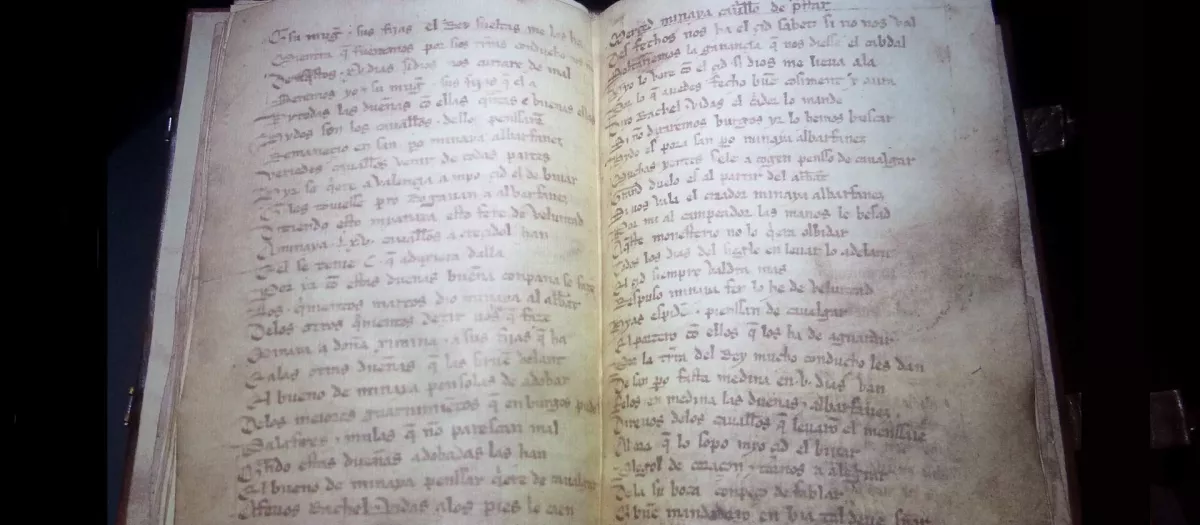 E su mug̃r & sus fijas el Rey sueltas me los ha
Mientra q̃ fueremos por sus t̃ras conducho nos
De aq̃stos .xv. dias si dios nos curiare de mal
Seremos yo & su mug̃r & sus fijas q̃ el a
E todas las dueñas cõ ellas q̃ntas e buenas ellas
Hydos son los cavall̃os & dello penssarã
Remanecio en san po minaya albarfanez
veriedes cavall̃os venir de todas partes
Hyr se q̃ere a valencia a myo çid el de bivar
Q̃ les toviesse pro Rogavan a albarfanez
Diziendo esto mianaya esto fere de veluntad
A minaya .lxv. cavall̃os a creçidol han
E el se tenie .C. q̃ aduxiera dalla
Por yr cõ estas dueñas buẽna conpaña se faze
Los quinientos marcos dio minaya al abbat
De los otros q̃nientos dezir vos q̃ faze
Minaya a doña ximina & a sus fijas q̃ ha
E a las otras dueñas q̃ las sirvẽ delant
El bueno de minaya pensolas de adobar
De los meiores guarnimientos q̃ en burgos
Palafres & mulas q̃ nõ parescan mal
Q̃ndo estas dueñas adobadas las han
El bueno de minaya penssar q̃ere de cavalgar
Afevos Rachel & vidas a los pies le caen
Merçed minaya cavall̃o de prestar
Desfechos nos ha el çid sabet si no nos val
Soltariemos la ganançia q̃ nos diesse el cabdal
Hyo lo vere cõ el çid si dios me lieva ala
Por lo q̃ avedes fecho buẽ cosiment y avra
Dixo Rachel & vidas el c̃ador lo mande
Si nõ dexaremos burgos yr lo hemos buscar
Hydo es pora san po minaya albarfanez
Muchas yentes sele a cogen pensso de cavalgar
Grand duelo es al partir del abbat
Si vos vala el criador minaya albarfanez
Por mi al campeador las manos le besad
Aq̃ste monesterio no lo q̃era olbidar
Todos los dias del sieglo en levar lo adelant
El çid siempre valdra mas
Respuso minaya fer lo he de veluntad
Hyas espidẽ & pienssan de cavalgar
El portero cõ ellos q̃ los ha de aguardar
Por la t̃ra del Rey mucho conducho les dan
De san po fasta medina en .v. dias van
Felos en medina las dueñas & albarfanez
Direvos delos cavall̃os q̃ levarõ el menssaie
Al ora q̃ lo sopo myo çid el de bivar
Plogol de coraçon & tornos a alegrar
De la su boca conpeço de fablar
Q̃ buẽ mandadero en bia tal deve sperar